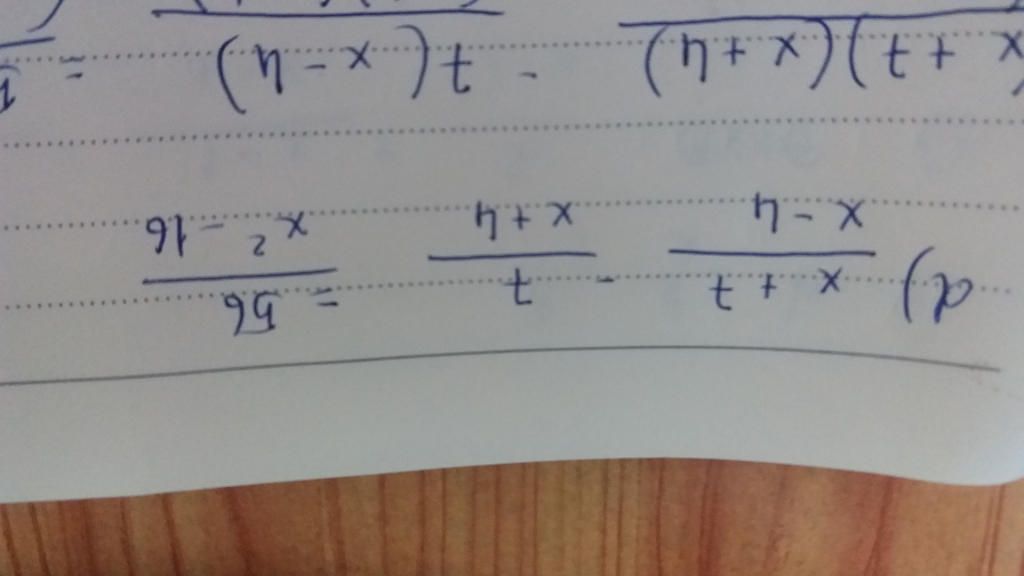 a) x + 7 / x - 4 - 7 / x + 4 = 56 / x² - 16
(x + 7)(x + 4) - 7(x - 4) =